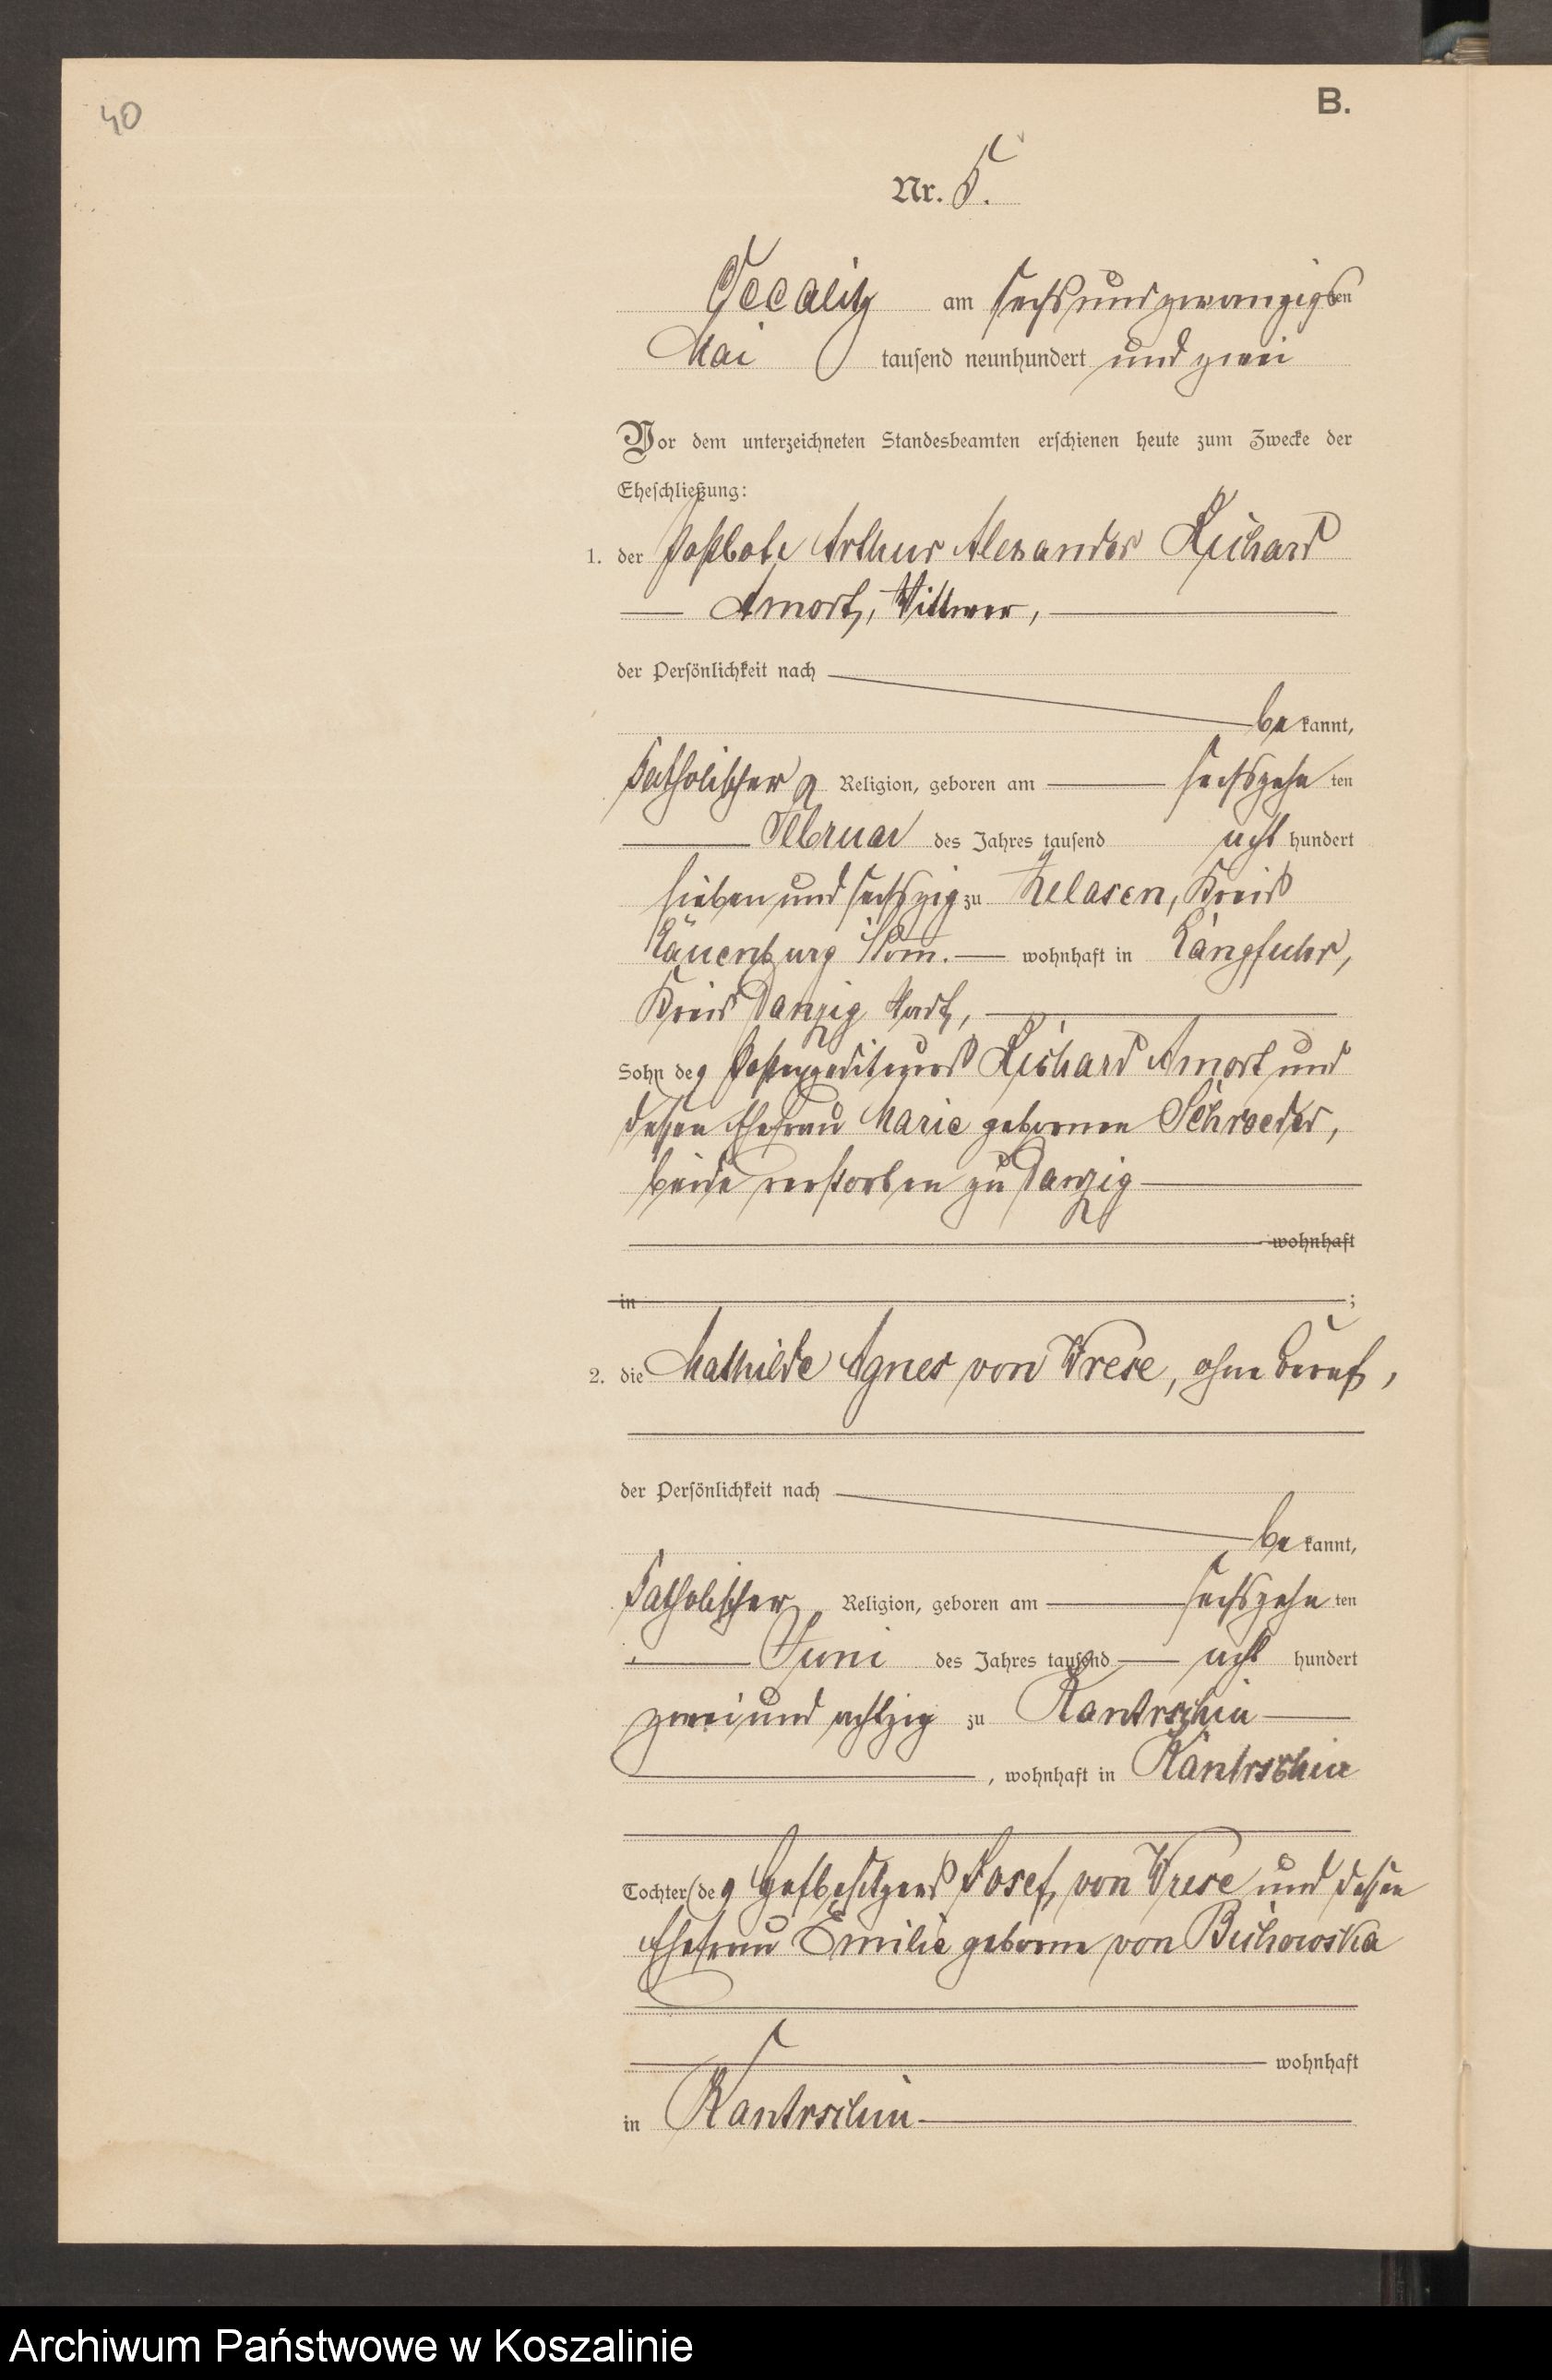 40
B.
Nr. 5.
Occalitz am sechsundzwanzigsten
Mai tausend neunhundert und zwei
Vor dem unterzeichneten Standesbeamten erschienen heute zum Zwecke der
Eheschließung:
1. der Postbote Arthur Alexander Richard
Amort, Wittwer,
der Persönlichkeit nach
bekannt,
katholischer Religion, geboren am sechszehnten
Februar des Jahres tausend achthundert
sieben und sechszig zu Zelasen, Kreis
Lauenburg i/Pom. wohnhaft in Langfuhr,
Kreis Danzig Stadt,
Sohn des Postexpediteurs Richard Amort und
dessen Ehefrau Marie geborenen Schroeder,
beide verstorben zu Danzig
wohnhaft
in ;
2. die Mathilde Agnes von Wrese, ohne Beruf,
der Persönlichkeit nach
bekannt,
katholischer Religion, geboren am sechszehnten
Juni des Jahres tausend acht hundert
zwei und achtzig zu Kantrschin
, wohnhaft in Kantrschin
Tochter des Hofbesitzers Josef von Wrese und dessen
Ehefrau Emilie geborne von Bichowska
wohnhaft
in Kantrschin
Archiwum Państwowe w Koszalinie